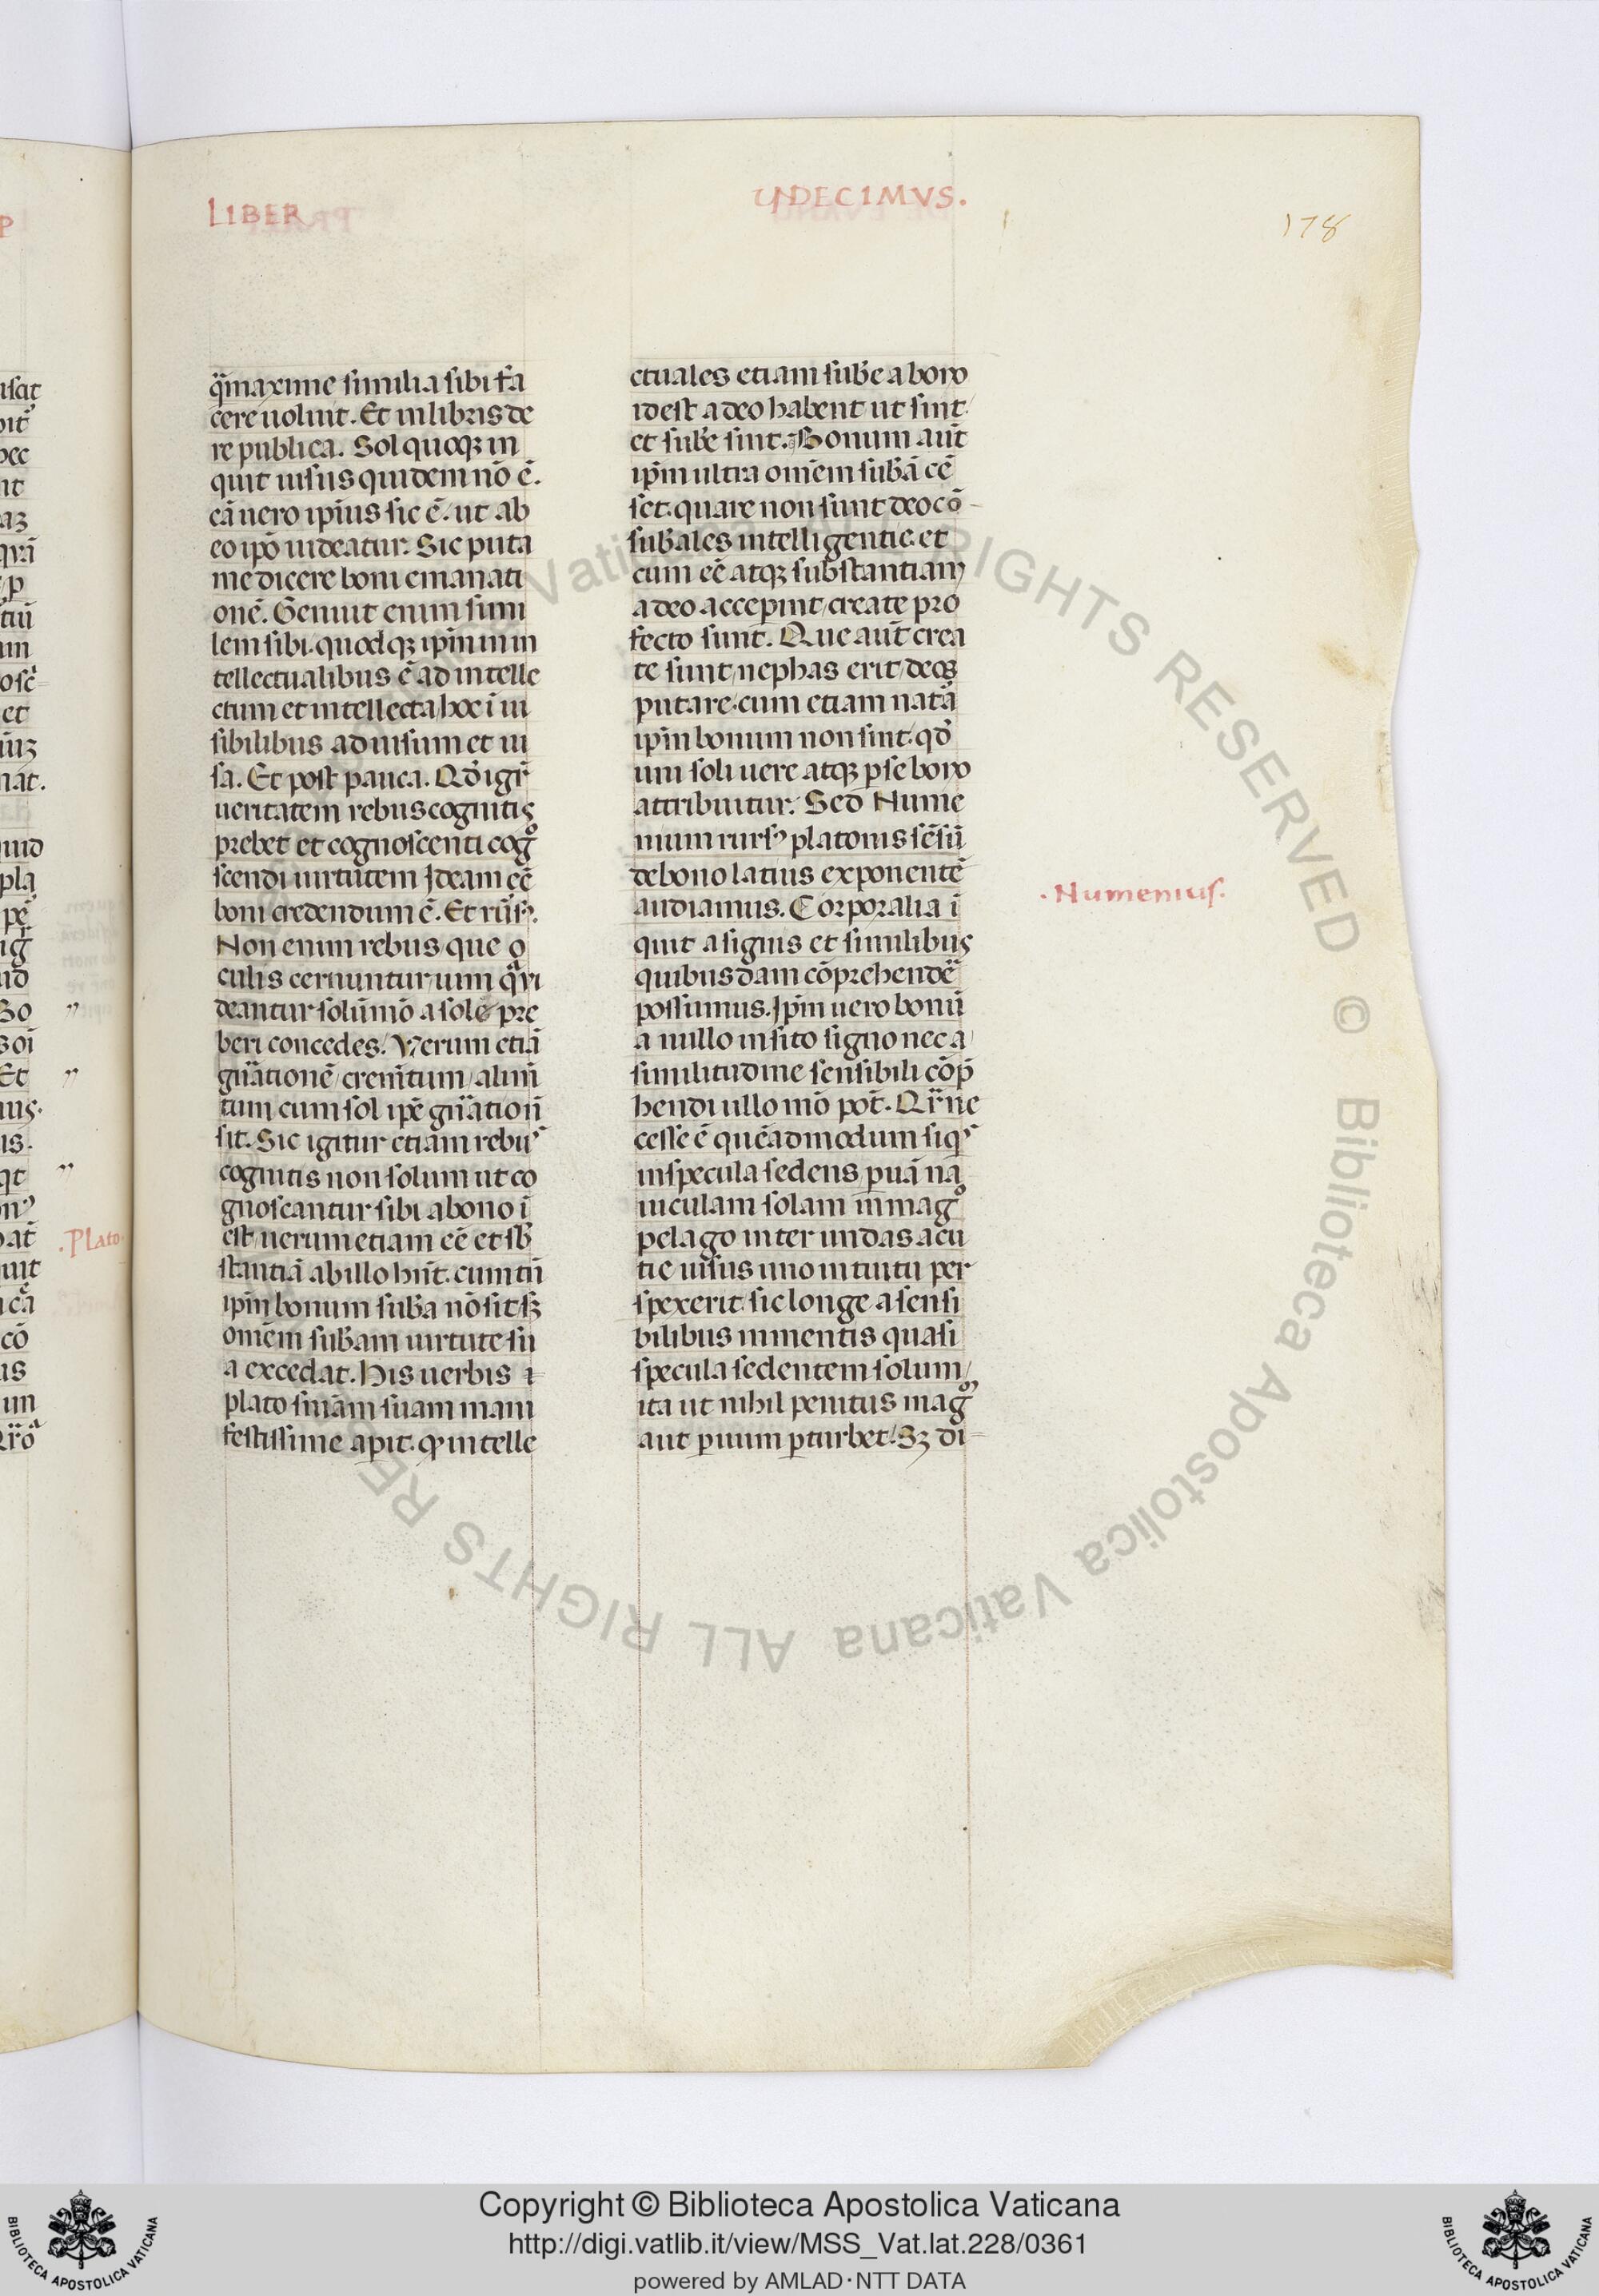 LIBER
VNDECIMVS.
178
q̃maxime similia sibi fa
cere uoluit. Et in libris de
re publica. Sol quoqꝫ in
quit uisus quidem nō ē.
cā uero ipsius sic ē. ut ab
eo ip̄o uideatur. Sic puta
me dicere boni emanati
onē. Genuit enim simi
lem sibi. quodqꝫ ip̄m in in
tellectualibus ē ad intelle
ctum et intellecta hoc ī ui
sibilibus ad uisum et ui
sa. Et post pauca. Qd̄ igr̃
ueritatem rebus cognitis
prebet et cognoscenti cog̊
scendi uirtutem Jdeam eē
boni credendum ē. Et rūsꝰ.
Non enim rebus que o
culis cernuntur uim q̃ ui
deantur solūmō a sole pre
beri concedes. Verum etiā
gñationē crem̄tum alim̄
tum cum sol ip̄e gñatio ñ
sit. Sic igitur etiam rebuˢ
cognitis non solum ut co
gnoscantur sibi a bono ī
est uerum etiam eē et sb̄
stantiā ab illo hn̄t. cum tñ
ip̄m bonum sub̄a nō sit sꝫ
om̄em sub̄am uirtute su
a excedat. His uerbis
plato sn̄iam suam mani
festissime apit. ꝙ intelle
ctuales etiam sub̄e a bono
idest a deo habent ut sint
et sub̄e sint. Bonum aūt
ip̄m ultra om̄em sub̄ā cē
set. quare non sunt deo cō
sub̄ales intelligentie. et
cum eē atqꝫ substantiam
a deo acceperint create pro
fecto sunt. Que aūt crea
te sunt nephas erit deos
putare. cum etiam natᵃ
ip̄m bonum non sint. qd̄
uni soli uere atqꝫ p̱se bono
attribuitur. Sed Nume
nium rursꝰ platonis sēsū
de bono latius exponentē
audiamus. Corporalia ī
quit a signis et similibus
quibusdam cōprehendẽ
possumus. Jp̄m uero bonū
a nullo insito signo nec a
similitudine sensibili cōp̱
hendi ullo mō pōt. Qr̃ ne
cesse ē quēadmodum siqˢ
in specula sedens p̱uā na
uiculam solam in mag̊
pelago inter undas acu
tie uisus uno intuitu per
spexerit. sic longe a sensi
bilibus in mentis quasi
specula sedentem solum
ita ut nihil penitus mag̊
aut p̱uum p̱turbet. Sꝫ di
.Numenius.
.Plato.
Copyright © Biblioteca Apostolica Vaticana
http://digi.vatlib.it/view/MSS_Vat.lat.228/0361
powered by AMLAD·NTT DATA